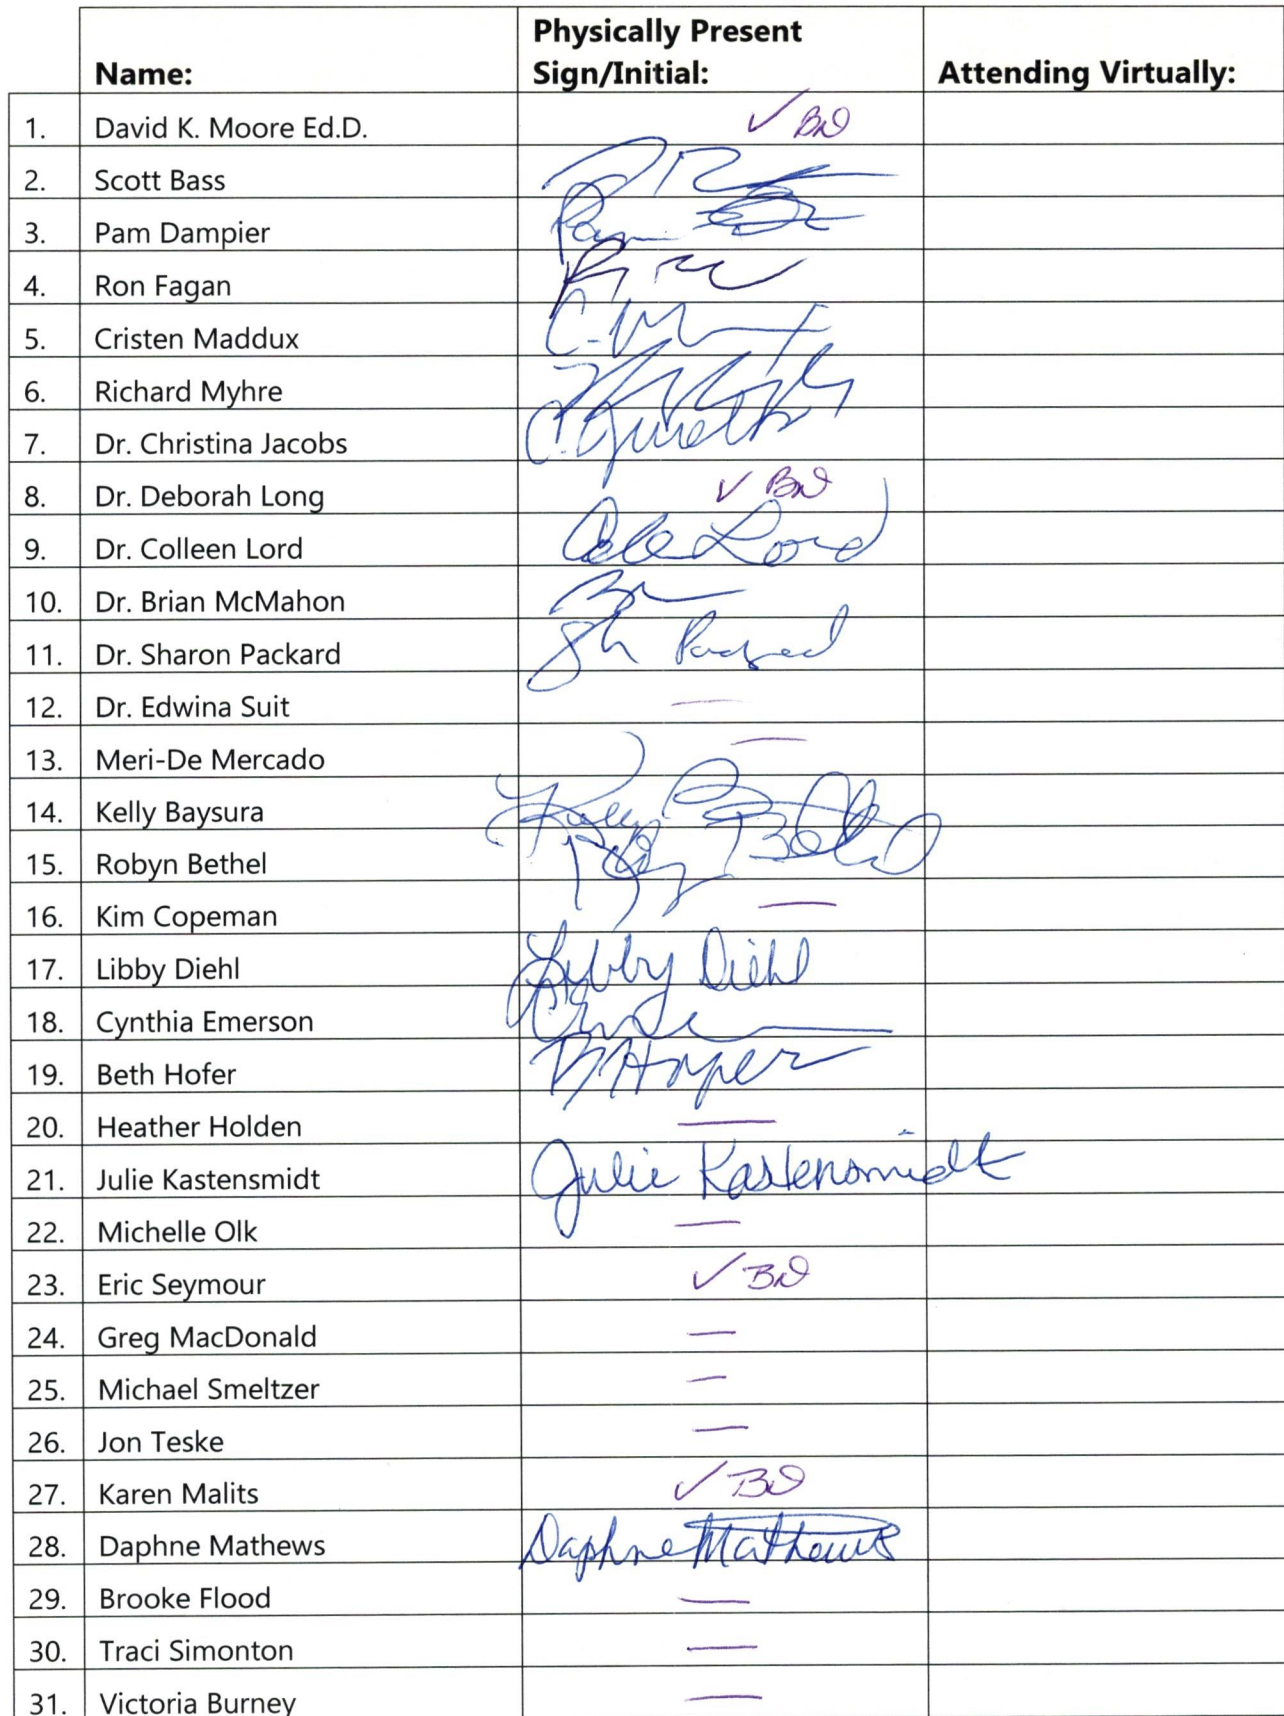 Name: Physically Present Sign/Initial: Attending Virtually:
1. David K. Moore Ed.D. ✓ BD
2. Scott Bass
3. Pam Dampier Pam
4. Ron Fagan
5. Cristen Maddux
6. Richard Myhre
7. Dr. Christina Jacobs
8. Dr. Deborah Long ✓ BD
9. Dr. Colleen Lord Cole Lord
10. Dr. Brian McMahon
11. Dr. Sharon Packard Sh Packard
12. Dr. Edwina Suit —
13. Meri-De Mercado —
14. Kelly Baysura Kelly
15. Robyn Bethel Robyn Bethel
16. Kim Copeman —
17. Libby Diehl Libby Diehl
18. Cynthia Emerson
19. Beth Hofer B Hofer
20. Heather Holden —
21. Julie Kastensmidt Julie Kastensmidt
22. Michelle Olk —
23. Eric Seymour ✓ BD
24. Greg MacDonald —
25. Michael Smeltzer —
26. Jon Teske —
27. Karen Malits ✓ BD
28. Daphne Mathews Daphne Mathews
29. Brooke Flood —
30. Traci Simonton —
31. Victoria Burney —